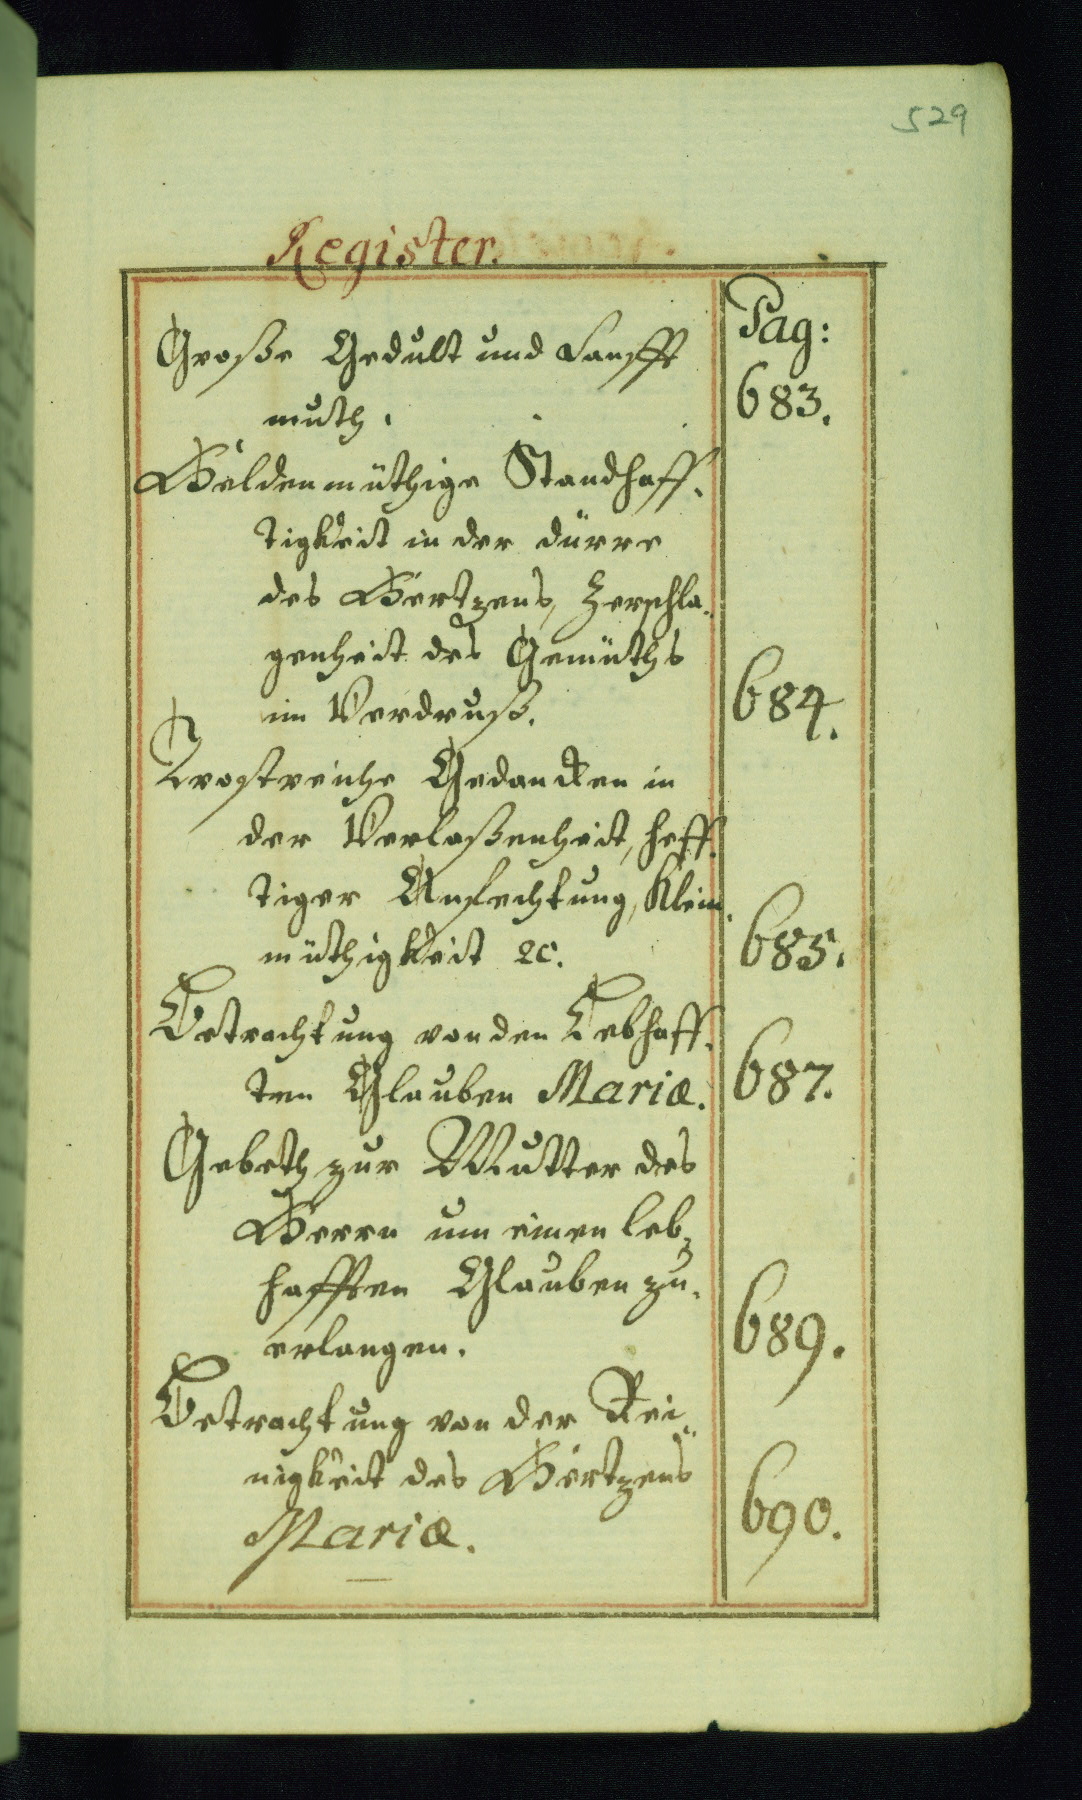 529
Register.
Pag:
Große Gedult und Sanfft
muth. 683.
Heldenmüthige Standhaff-
tigkeit in der dürre
des Hertzens, Zerschla-
genheit des Gemüths
im Verdruß. 684.
Trostreiche Gedancken in
der Verlaßenheit, heff-
tiger Anfechtung, Klein-
müthigkeit ꝛc. 685.
Betrachtung von den Lebhaff-
ten Glauben Mariæ. 687.
Gebeth zur Mutter des
Herrn um einen leb-
hafften Glauben zu-
erlangen. 689.
Betrachtung von der Rei-
nigkeit des Hertzens
Mariæ. 690.